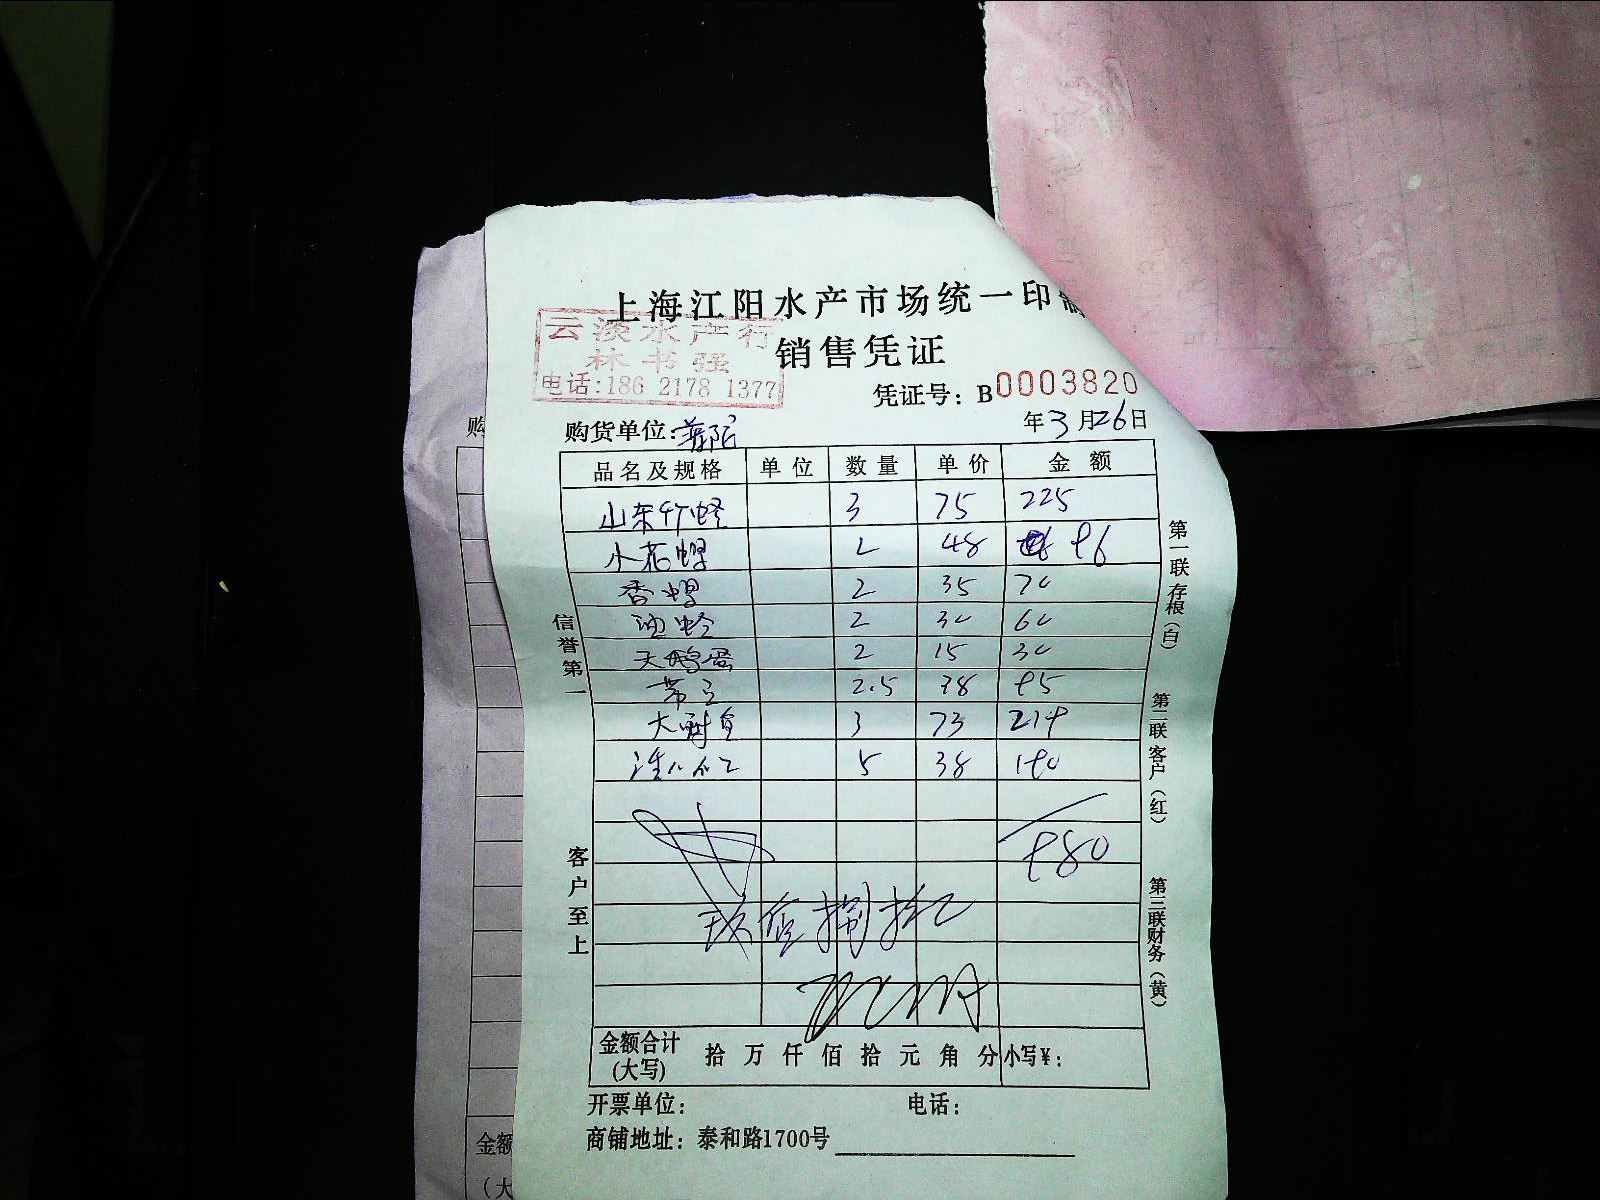 上海江阳水产市场统一印制
销售凭证
云淡水产行
林书强
电话:186 2178 1377
凭证号: B0003820
购货单位:普陀 年3月26日
品名及规格 单位 数量 单价 金额
山东竹蛏 3 75 225
小花螺 2 48 96
香螺 2 35 70
油蛤 2 30 60
天鹅蛋 2 15 30
2.5 38 95
3 73 219
5 38 190
980
玖佰捌拾元
金额合计(大写) 拾 万 仟 佰 拾 元 角 分 小写¥:
开票单位: 电话:
商铺地址: 泰和路1700号
信誉第一
客户至上
第一联存根(白)
第二联客户(红)
第三联财务(黄)
购
金额
(大